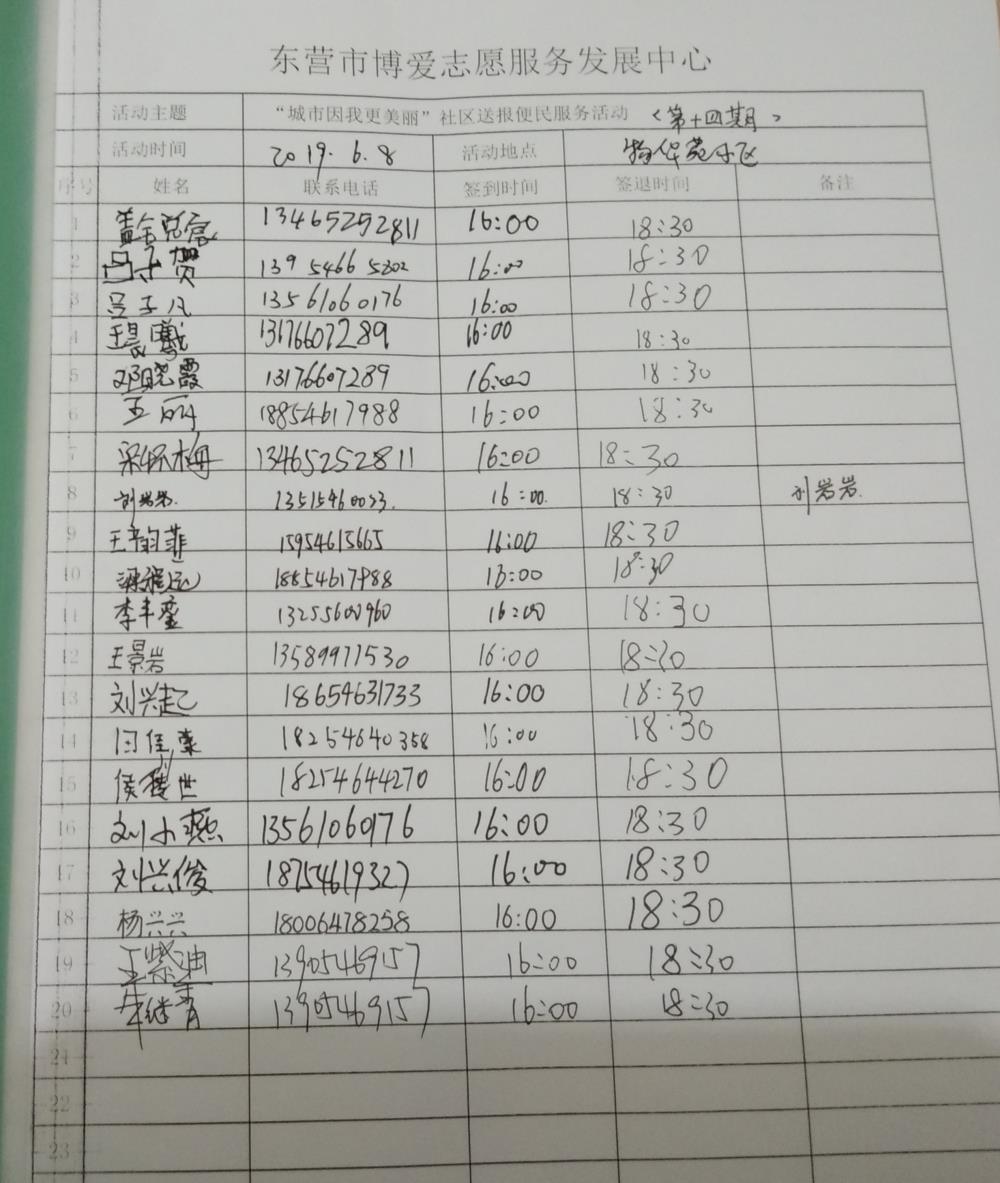 东营市博爱志愿服务发展中心
活动主题 “城市因我更美丽”社区送报便民服务活动 (第十四期)
活动时间 2019.6.8 活动地点 物华苑小区
序号 姓名 联系电话 签到时间 签退时间 备注
1 13465252811 16:00 18:30
2 13954665302 16:00 18:30
3 吕子凡 13561060176 16:00 18:30
4 王晨曦 13176607289 16:00 18:30
5 邓晓霞 13176607289 16:00 18:30
6 王丽 18854617988 16:00 18:30
7 梁保梅 13465252811 16:00 18:30
8 刘岩岩 13515460023 16:00 18:30 刘岩岩
9 王韵菲 15954615665 16:00 18:30
10 18854617988 16:00 18:30
11 李丰 13255600960 16:00 18:30
12 王景岩 13589971530 16:00 18:30
13 刘兴起 18654631733 16:00 18:30
14 18254640358 16:00 18:30
15 侯 世 18254644270 16:00 18:30
16 刘小燕 13561060176 16:00 18:30
17 刘兴俊 18754619327 16:00 18:30
18 杨兴兴 18006478258 16:00 18:30
19 王紫迪 13905469157 16:00 18:30
20 继青 13905469157 16:00 18:30
21
22
23